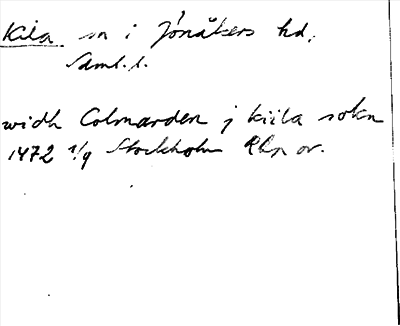 Kila sn i Jönåkers hd.
Söml. l.
widh Colmarden j kiila sokn
1472 1/9 Stockholm RAp or.